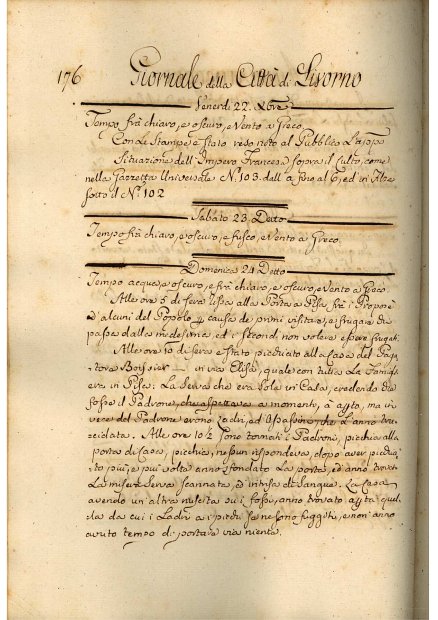 176 Giornale della Città di Livorno
Venerdì 22. Xbre
Tempo frà chiaro, e oscuro, e Vento a Greco
Con Le Stampe è stato reso noto al Pubblico La
Situazione dell'Impero Francese sopra il Culto, come
nella Gazzetta Universale N. 103. dell' a
sotto il N. 102
Sabato 23. Detto
Tempo frà chiaro, e oscuro, e fusco, e Vento a Greco
Domenica 24 Detto
Tempo acque, e oscuro, e frà chiaro, e oscuro, e Vento a Greco
Alle ore 5 di sera alla Porta a Pisa frà i
ed alcuni del Popolo causa de primi visitare, e frugare chi
passa dalla medesima, ed i secondi non volere essere frugati
Alle ore 10 di sera è stato picchiato alla Casa del
in via Elisa, quale con tutta La Famiglia
era in Pisa. La Serva che era sola in Casa, credendo che
fosse il Padrone, che aspettava a momenti, à apto, ma in
vece del Padrone erono Ladri, ed Assassini, che L'anno tru-
cidata. Alle ore 10½ sono tornati i Padroni, picchia alla
porta di Casa, picchia, nessun rispondeva, dopo aver picchia
to più, e più volte anno sfondato La porta, ed anno trovato
La misera Serva scannata, ed intrisa di Sangue. La Casa
avendo un altra uscita su i fossi, anno trovato apta quel-
la da cui i Ladri a i piedi se ne sono fuggiti, e non anno
avuto tempo di portare via niente.